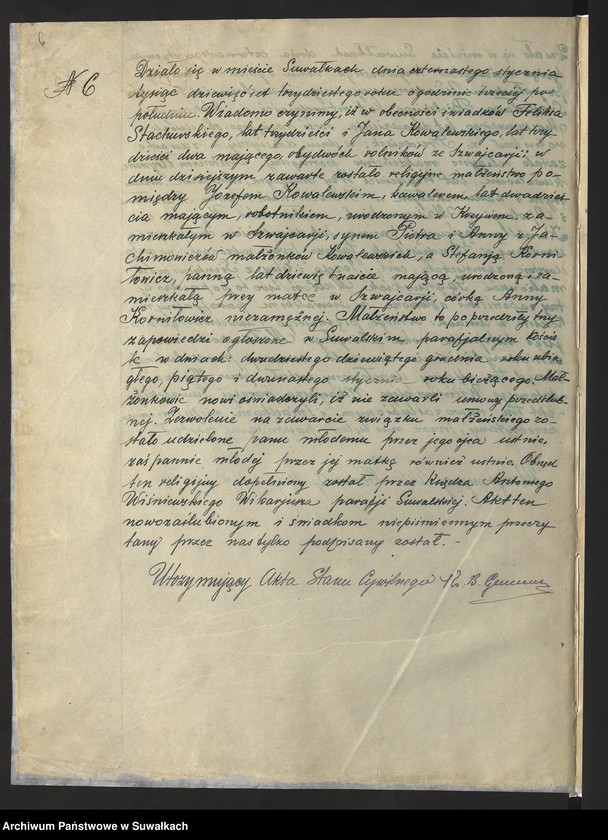 № 6
Działo się w mieście Suwałkach dnia czternastego stycznia
tysiąc dziewięćset trzydziestego roku o godzinie trzeciej po
południu. Wiadomo czynimy, iż w obecności świadków Feliksa
Stachurskiego, lat trzydzieści i Jana Kowalewskiego, lat trzy
dzieści dwa mającego, obydwóch rolników ze Szwajcarji w
dniu dzisiejszym zawarte zostało religijne małżeństwo po-
między Józefem Kowalewskim, kawalerem, lat dwadzieś-
cia mającym, robotnikiem, urodzonym w Krzywem, za-
mieszkałym w Szwajcarji, synem Piotra i Anny z Ja-
chimowiczów małżonków Kowalewskich, a Stefanją Korni
łowicz, panną lat dziewiętnaście mającą, urodzoną i za-
mieszkałą przy matce w Szwajcarji, córką Anny
Korniłowicz niezamężnej. Małżeństwo to poprzedziły trzy
zapowiedzi ogłoszone w Suwalskim parafjalnym koście
le w dniach: dwudziestego dziewiątego grudnia roku ubie
głego, piątego i dwunastego stycznia roku bieżącego. Mał-
żonkowie nowi oświadczyli, iż nie zawarli umowy przedślub-
nej. Zezwolenie na zawarcie związku małżeńskiego zo-
stało udzielone panu młodemu przez jego ojca ustnie,
zaś pannie młodej przez jej matkę również ustnie. Obrzęd
ten religijny dopełniony został przez Księdza Antoniego
Wiśniewskiego Wikarjusza parafji Suwalskiej. Akt ten
nowozaślubionym i świadkom niepiśmiennym przeczy
tany przez nas tylko podpisany został. -
Utrzymujący Akta Stanu Cywilnego
Archiwum Państwowe w Suwałkach